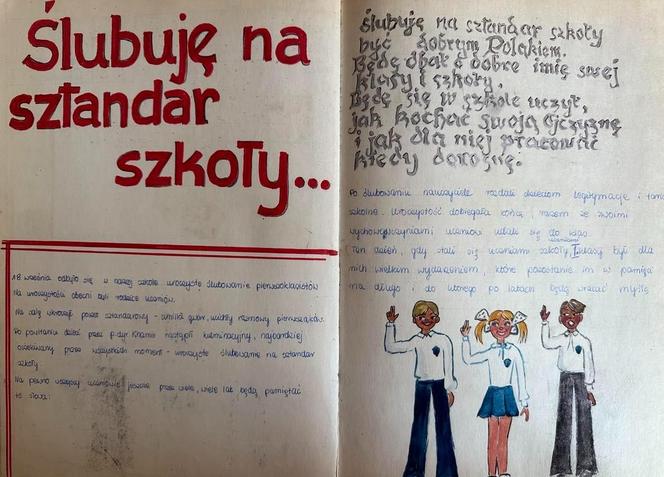 Ślubuję na
sztandar
szkoły...
18 września odbyło się w naszej szkole uroczyste ślubowanie pierwszoklasistów
Na uroczystości obecni byli rodzice uczniów.
Na salę wkroczył poczet sztandarowy - umilkł gwar, ucichły rozmowy pierwszaków.
Po powitaniu dzieci przez p. dyr. nastąpił kulminacyjny, najbardziej
oczekiwany przez wszystkich moment - uroczyste ślubowanie na sztandar
szkoły.
Na pewno wszyscy uczniowie jeszcze przez wiele, wiele lat będą pamiętać
te słowa:
Ślubuję na sztandar szkoły
być dobrym Polakiem.
Będę dbał o dobre imię swej
klasy i szkoły,
Będę się w szkole uczył,
jak kochać swoją Ojczyznę
i jak dla niej pracować
kiedy dorosnę.
Po ślubowaniu nauczyciele rozdali dzieciom legitymacje i
szkolne. Uroczystość dobiegała końca, razem ze swoimi
wychowawczyniami uczniowie udali się do klas.
Ten dzień, gdy stali się uczniami klasy był dla
nich wielkim wydarzeniem, które pozostanie im w pamięci
na długo i do którego po latach będą wracać myślą